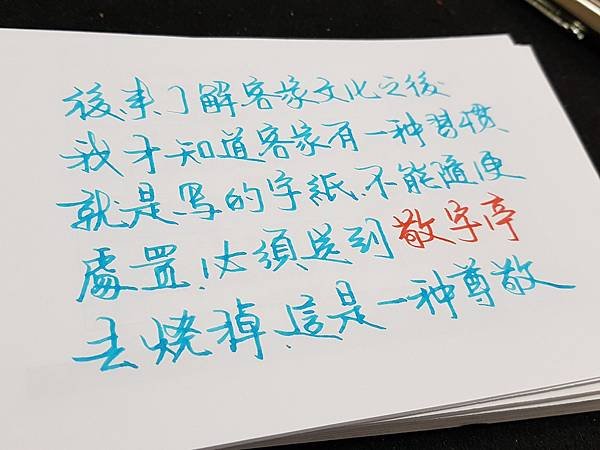 後來了解客家文化之後
我才知道客家有一种習慣
就是写的字紙.不能隨便
處置.必須送到敬字亭
去燒掉.這是一种尊敬